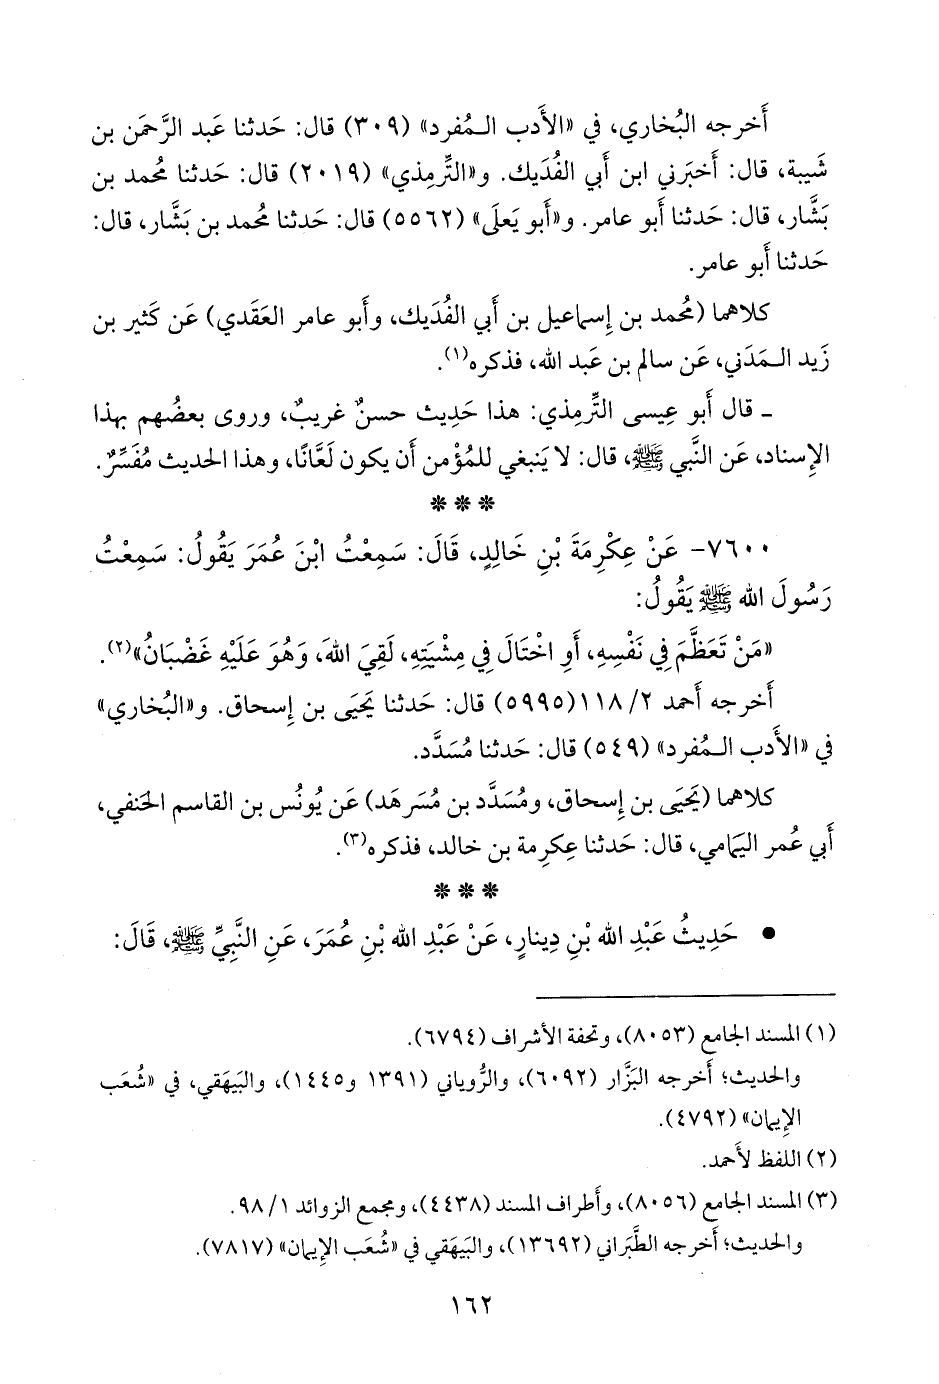 أَخرجه البُخاري، في «الأَدب الـمُفرد» (٣٠٩) قال: حَدثنا عَبد الرَّحمَن بن
شَيبة، قال: أَخبَرني ابن أَبي الفُدَيك. و«التِّرمِذي» (٢٠١٩) قال: حَدثنا محمد بن
بَشَّار، قال: حَدثنا أَبو عامر. و«أَبو يَعلَى» (٥٥٦٢) قال: حَدثنا مُحمد بن بَشَّار، قال:
حَدثنا أَبو عامر.
كلاهما (مُحمد بن إِسماعيل بن أَبي الفُدَيك، وأَبو عامر العَقَدي) عَن كَثير بن
زَيد الـمَدَني، عَن سالم بن عَبد الله، فذكره(١).
ـ قال أَبو عِيسى التِّرمِذي: هذا حَدِيث حسنٌ غريبٌ، وروى بعضُهم بهذا
الإِسناد، عَن النَّبي ﷺ، قال: لا يَنبغي للمُؤْمن أَن يكون لَعَّانًا، وهذا الحديث مُفَسِّرٌ.
* * *
٧٦٠٠- عَنْ عِكْرِمَةَ بْنِ خَالِدٍ، قَالَ: سَمِعْتُ ابْنَ عُمَرَ يَقُولُ: سَمِعْتُ
رَسُولَ الله ﷺ يَقُولُ:
«مَنْ تَعَظَّمَ فِي نَفْسِهِ، أَوِ اخْتَالَ فِي مِشْيَتِهِ، لَقِيَ اللهَ، وَهُوَ عَلَيْهِ غَضْبَانُ»(٢).
أَخرجه أَحمد ٢/ ١١٨(٥٩٩٥) قال: حَدثنا يَحيَى بن إِسحاق. و«البُخاري»
في «الأَدب الـمُفرد» (٥٤٩) قال: حَدثنا مُسَدَّد.
كلاهما (يَحيَى بن إِسحاق، ومُسَدَّد بن مُسَرهَد) عَن يُونُس بن القاسم الحَنفي،
أَبي عُمر اليَمامي، قال: حَدثنا عِكرِمة بن خالد، فذكره(٣).
* * *
• حَدِيثُ عَبْدِ الله بْنِ دِينارٍ، عَنْ عَبْدِ الله بْنِ عُمَرَ، عَنِ النَّبِيِّ ﷺ، قَالَ:
(١) المسند الجامع (٨٠٥٣)، وتحفة الأشراف (٦٧٩٤).
والحديث؛ أخرجه البَزَّار (٦٠٩٢)، والرُّوياني (١٣٩١ و١٤٤٥)، والبَيهَقي، في «شُعَب
الإِيمان» (٤٧٩٢).
(٢) اللفظ لأَحمد.
(٣) المسند الجامع (٨٠٥٦)، وأَطراف المسند (٤٤٣٨)، ومجمع الزوائد ١/ ٩٨.
والحديث؛ أخرجه الطَّبَراني (١٣٦٩٢)، والبَيهَقي في «شُعَب الإِيمان» (٧٨١٧).
١٦٢